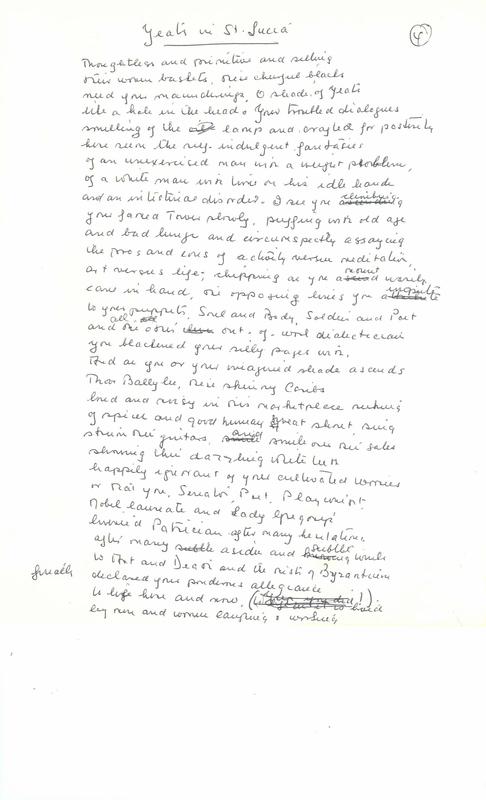 Yeats in St. Lucia
4
Thoughtless and primitive and selling
their woven baskets, these cheerful blacks
need your maunderings, O shade of Yeats
like a hole in the head. Your troubled dialogues
smelling of the lamp and crafted for posterity
here seem the self-indulgent fantasies
of an unexercised man with a weight problem,
of a white man with time on his idle hands
and an intestinal disorder. I see you climbing
your famed Tower slowly, puffing with old age
and bad lungs and circumspectly assaying
the pros and cons of activity versus meditation,
art versus life; chipping as you mount warily
cane in hand, the opposing lines you
to your puppets, Soul and Body, Soldier and Poet
and all the other out-of-work dialecticians
you blackened your silly pages with.
And as you or your imagined shade ascends
Thoor Ballylee, these shining Caribs
loud and noisy in this marketplace reeking
of spices and good human sweat shout sing
strum their guitars, and smile over their sales
showing their dazzling white teeth
happily ignorant of your cultivated worries
or that you, Senator, Poet, Playwright
Nobel laureate and Lady Gregory's
Patrician after many hesitations
after many asides and subtle
to Art and Death and the rest of Byzantium
finally
declared your ponderous allegiance
to life here and now.
by men and women laughing & working